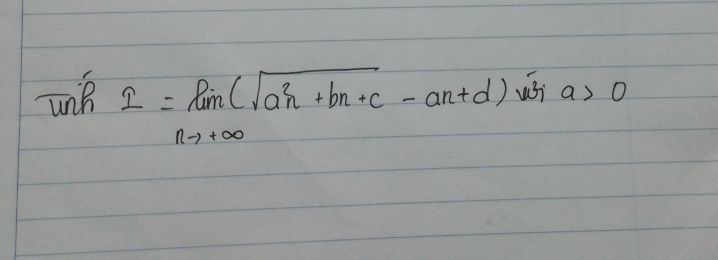 Tính I = lim(√(a²n + bn + c) - an + d) với a > 0
n→ +∞